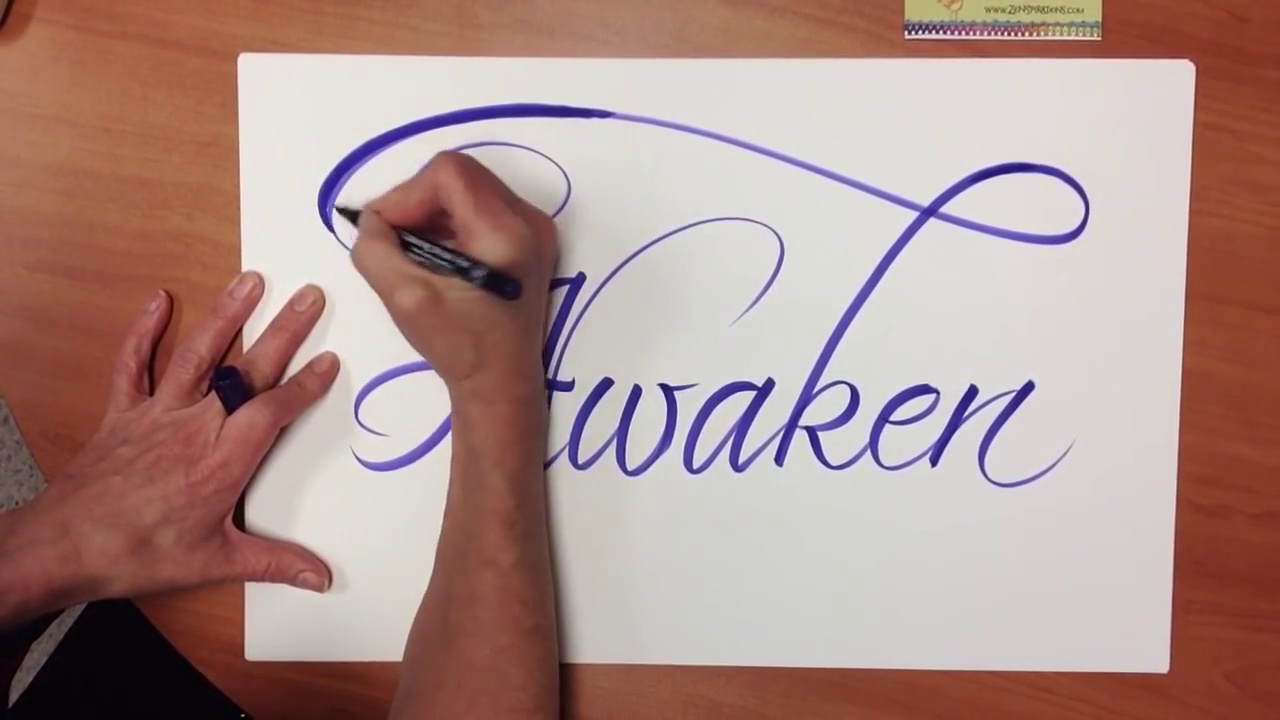 www.Zenspirations.com
Awaken